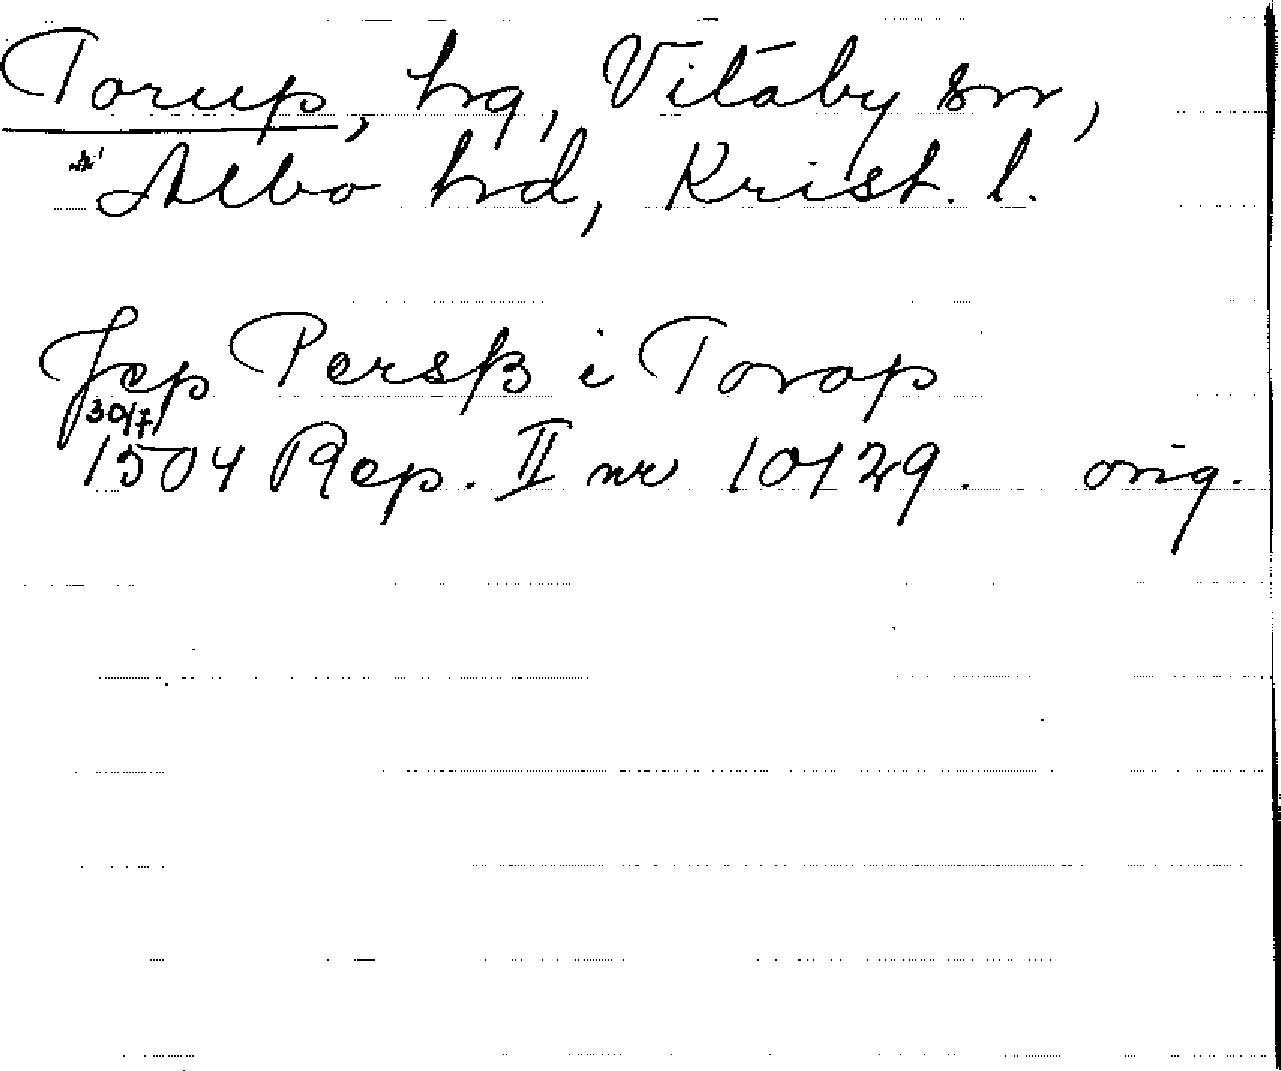 Torup, hg, Vitaby sn,
Albo hd, Krist. l.
Jep Persß i Torop
30/7
1504 Rep. II nr 10129. orig.